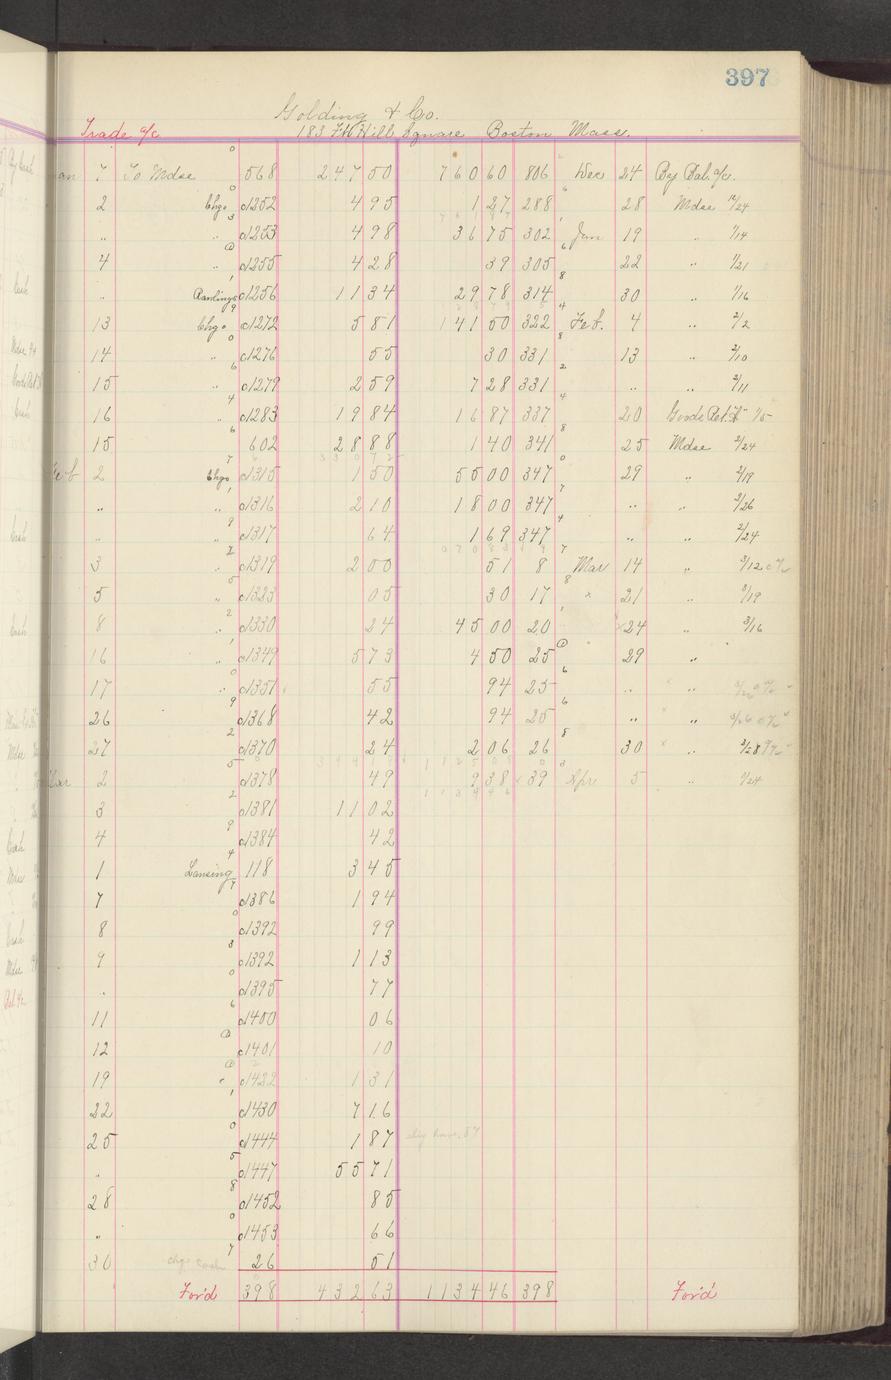 397
Golding & Co.
Trade a/c 183 Ft Hill Square Boston Mass.
Jan 7 To Mdse 568 247 50 760 60 806 Dec 24 By Bal. a/c.
2 Chgo c1252 4 95 1 27 288 28 Mdse 12/24
" " c1253 4 98 36 75 302 Jan 19 " 1/14
4 c1255 4 28 39 305 22 " 1/21
" Rawlings c1256 11 34 29 78 314 30 " 1/16
13 Chgo c1272 5 81 141 50 322 Feb. 4 " 2/2
14 " c1276 55 30 331 13 " 2/10
15 " c1279 2 59 7 28 331 " " 2/11
16 " c1283 19 84 16 87 337 20 Goods Ret.
15 602 28 88 1 40 341 25 Mdse 2/24
Feb 2 Chgo c1315 1 50 55 00 347 29 " 2/19
" " c1316 2 10 18 00 347 " " 2/26
" " c1317 64 1 69 347 " " 2/24
3 " c1319 2 00 51 8 Mar 14 " 3/12
5 " c1323 05 30 17 " 21 " 3/19
8 " c1330 24 45 00 20 24 " 3/16
16 " c1349 5 73 4 50 25 29 "
17 " c1351 55 94 25 " "
26 c1368 42 94 25 " "
27 c1370 24 2 06 26 30 " 3/28
Mar 2 c1378 49 9 38 39 Apr 5 "
3 c1381 11 02
4 c1384 42
1 Lansing 118 3 45
7 c1386 1 94
8 c1392 99
9 c1392 1 13
" c1395 77
11 c1400 06
12 c1401 10
19 " c1422 1 31
22 c1430 7 16
25 c1444 1 87
" c1447 55 71
28 c1452 85
" c1453 66
30 26 51
For'd 398 432 63 1134 46 398 For'd